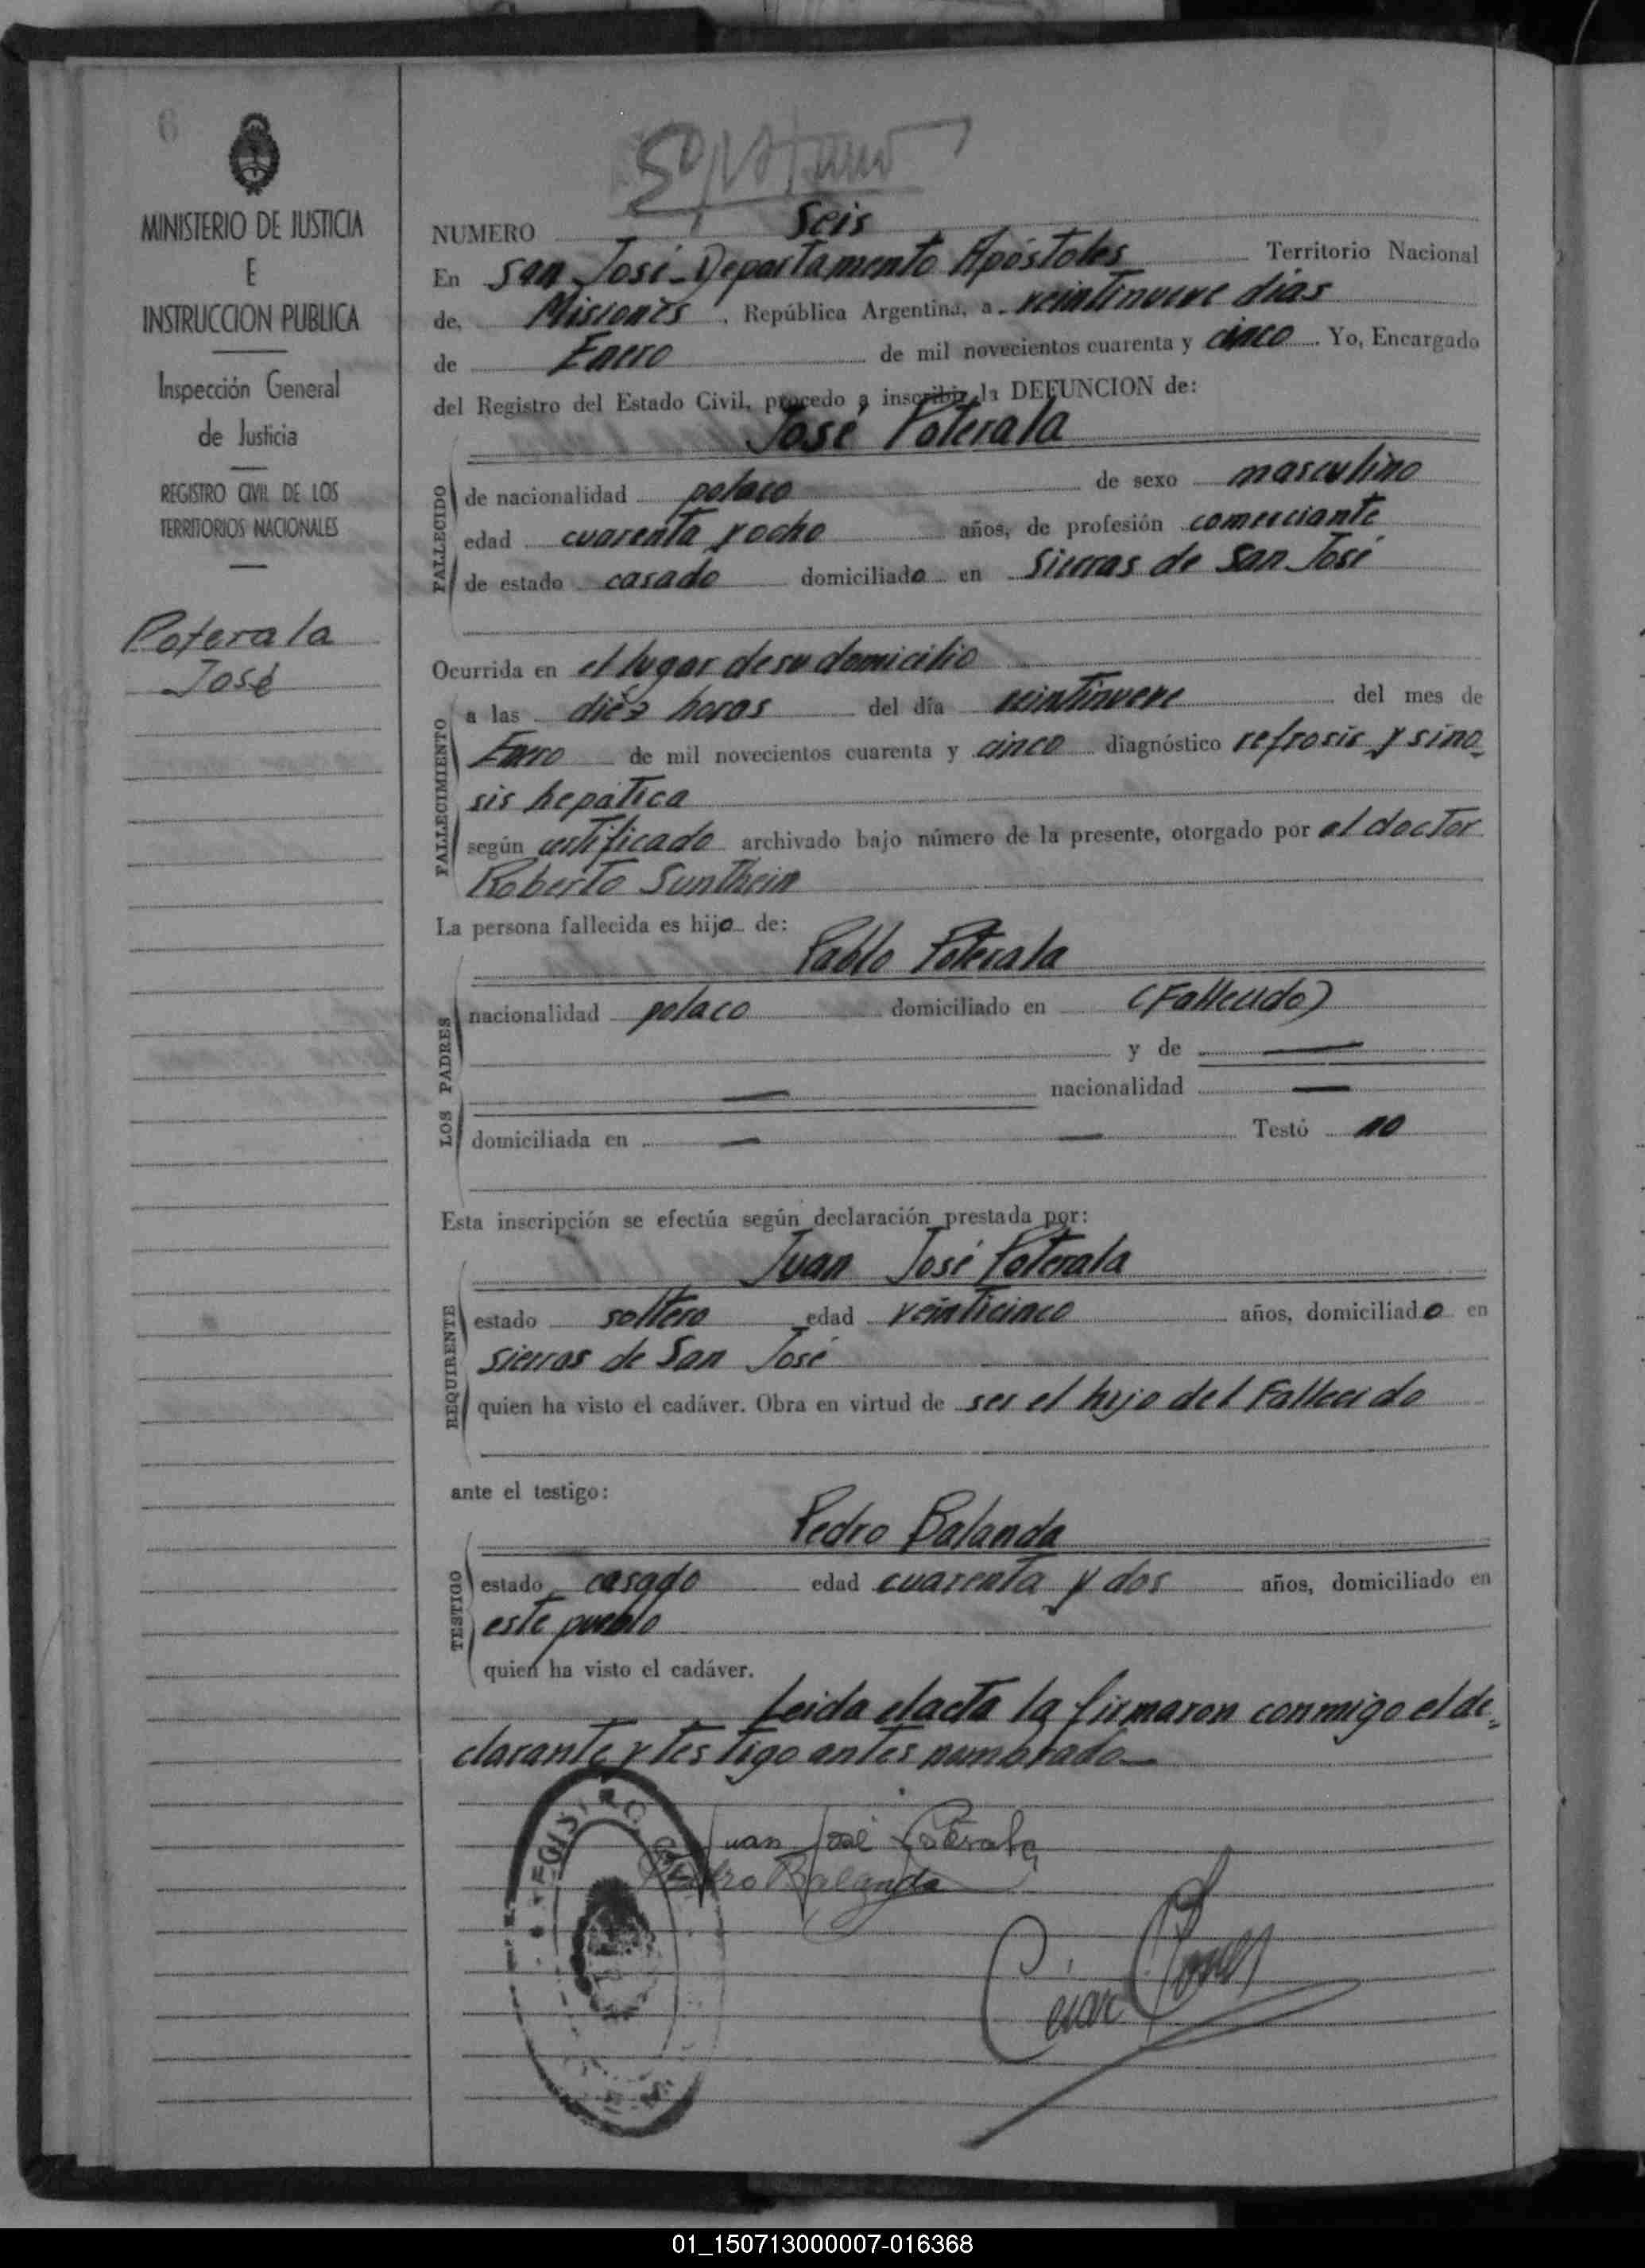 6
MINISTERIO DE JUSTICIA
E
INSTRUCCION PUBLICA
Inspección General
de Justicia
REGISTRO CIVIL DE LOS
TERRITORIOS NACIONALES
Poterala
José
NUMERO Seis
En San José - Departamento Apóstoles Territorio Nacional
de, Misiones, República Argentina, a veintinueve días
de Enero de mil novecientos cuarenta y cinco. Yo, Encargado
del Registro del Estado Civil, procedo a inscribir la DEFUNCION de:
José Poterala
FALLECIDO
de nacionalidad polaco de sexo masculino
edad cuarenta y ocho años, de profesión comerciante
de estado casado domiciliado en Sierras de San José
Ocurrida en el lugar de su domicilio
FALLECIMIENTO
a las diéz horas del día veintinueve del mes de
Enero de mil novecientos cuarenta y cinco diagnóstico refrosis y sino-
sis hepática
según certificado archivado bajo número de la presente, otorgado por el doctor
Roberto Sunthein
La persona fallecida es hijo de:
Pablo Poterala
LOS PADRES
nacionalidad polaco domiciliado en (Fallecido)
y de —
— nacionalidad —
domiciliada en — — Testó no
Esta inscripción se efectúa según declaración prestada por:
Juan José Poterala
REQUIRENTE
estado soltero edad veinticinco años, domiciliado en
sierras de San José
quien ha visto el cadáver. Obra en virtud de ser el hijo del Fallecido
ante el testigo:
Pedro Balanda
TESTIGO
estado casado edad cuarenta y dos años, domiciliado en
este pueblo
quien ha visto el cadáver.
Leida elacta la firmaron conmigo el de-
clarante y testigo antes nombrado—
REGISTRO
Juan José Poterala
Pedro Balanda
César
01_150713000007-016368